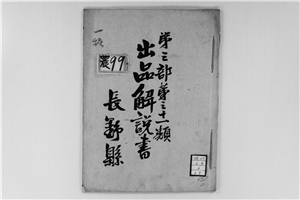 第三部第三十一類
出品解説書
長野縣
一號
農99